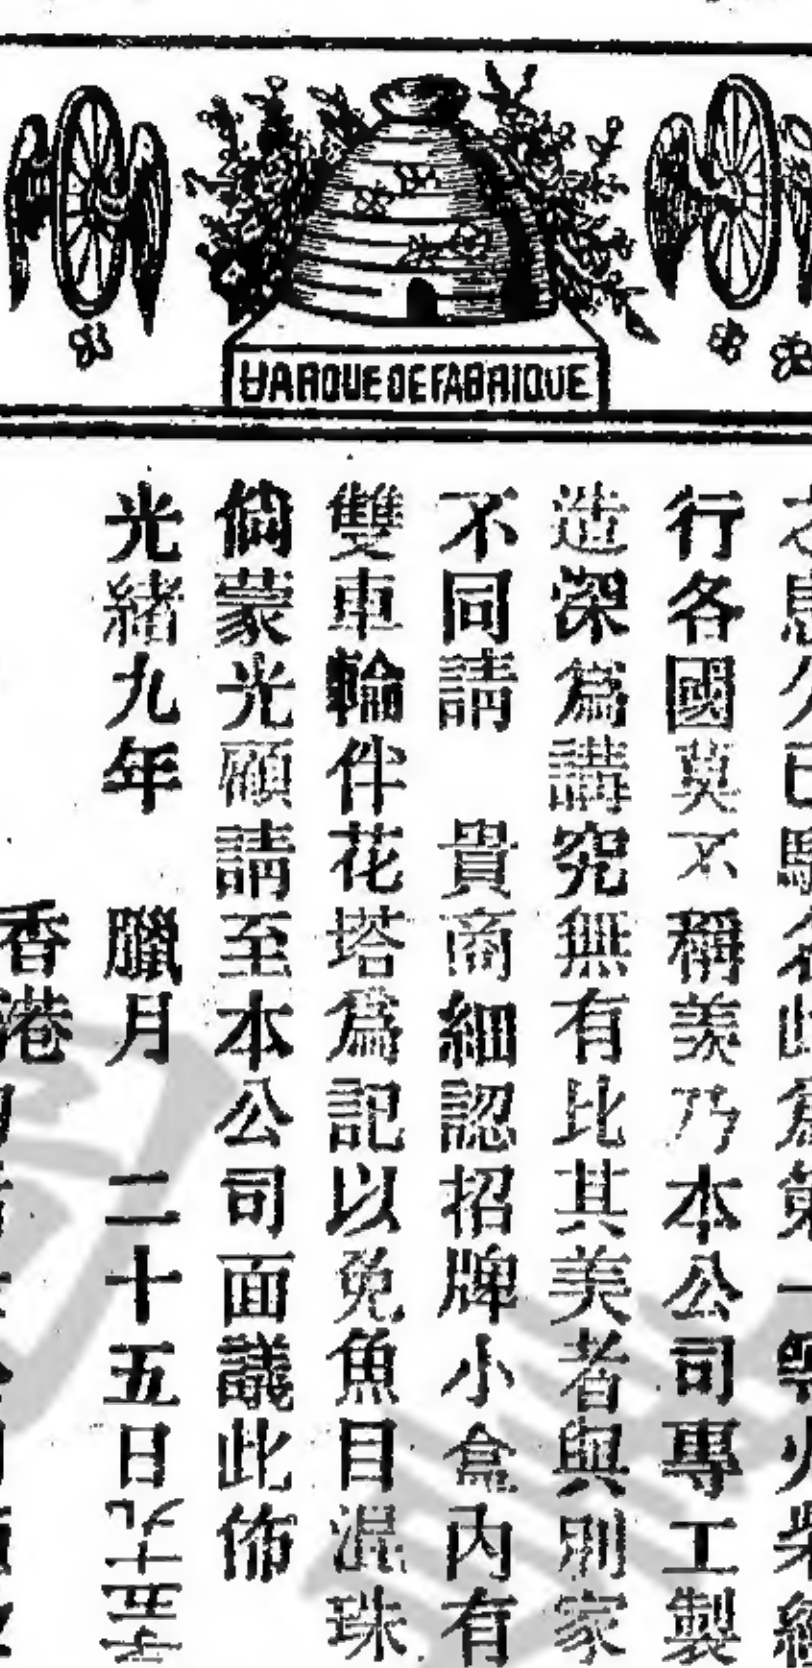 MARQUE DE FABRIQUE
行各國莫不稱羨乃本公司專工製
造深爲講究無有比其美者與別家
不同請 貴商細認招牌小盒內有
雙車輪伴花塔爲記以免魚目混珠
倘蒙光顧請至本公司面議此佈
光緒九年 臘月 二十五日
香港